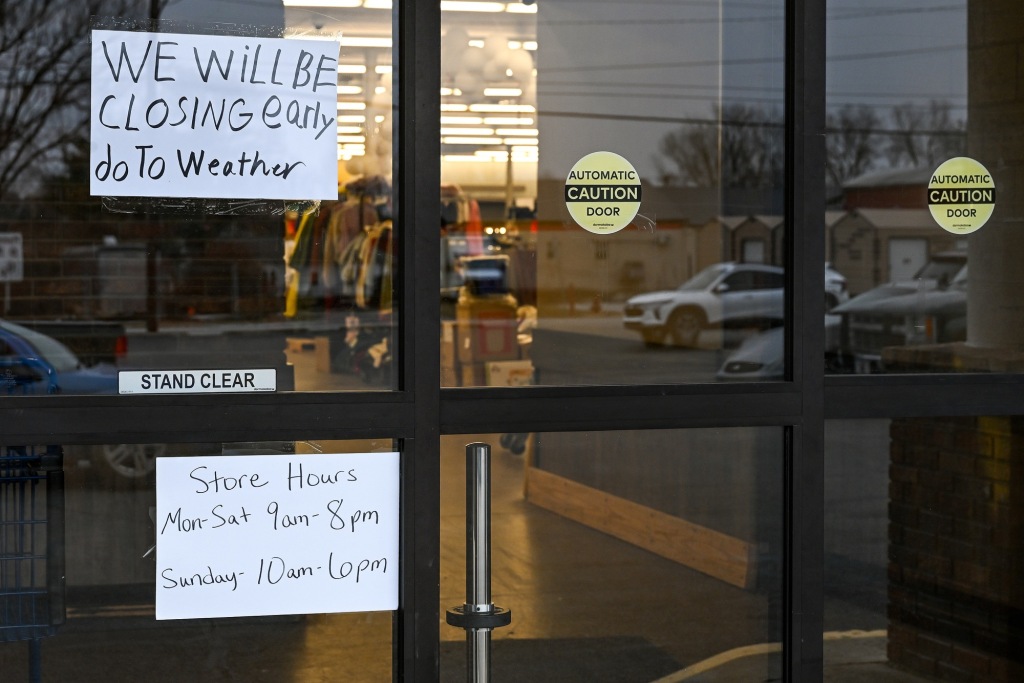 WE WiLL BE
CLOSING early
do To Weather
AUTOMATIC
CAUTION
DOOR
AUTOMATIC
CAUTION
DOOR
STAND CLEAR
Store Hours
Mon-Sat 9am-8pm
Sunday- 10am-6pm